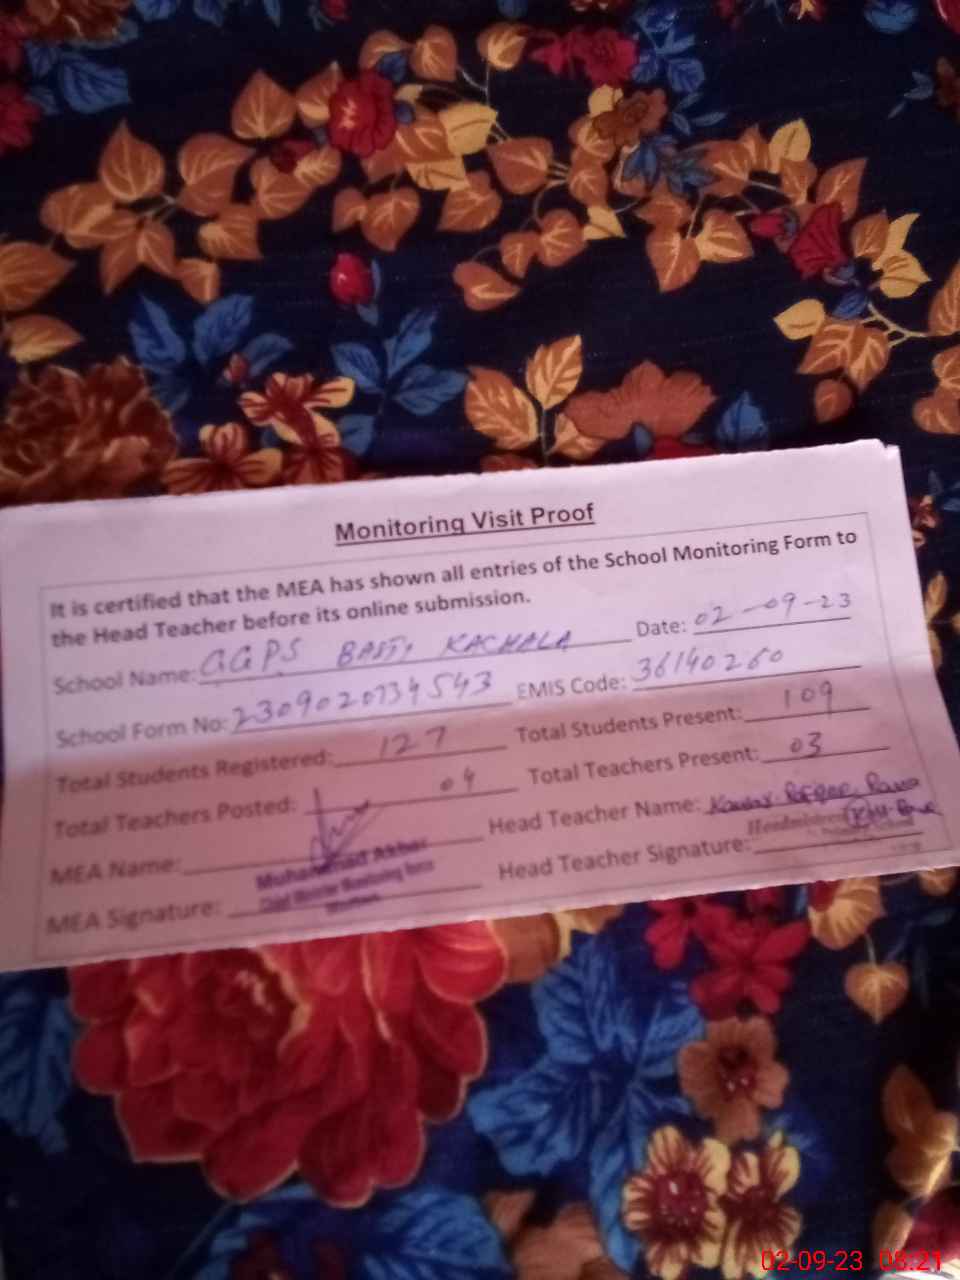 Monitoring Visit Proof
It is certified that the MEA has shown all entries of the School Monitoring Form to
the Head Teacher before its online submission.
School Name: GGPS BASTI KACHALA Date: 02-09-23
School Form No: 2309020734543 EMIS Code: 36140260
Total Students Registered: 127 Total Students Present: 109
Total Teachers Posted: 04 Total Teachers Present: 03
MEA Name: Head Teacher Name:
Muhammad Akhar
MEA Signature: Head Teacher Signature:
02-09-23 08:21